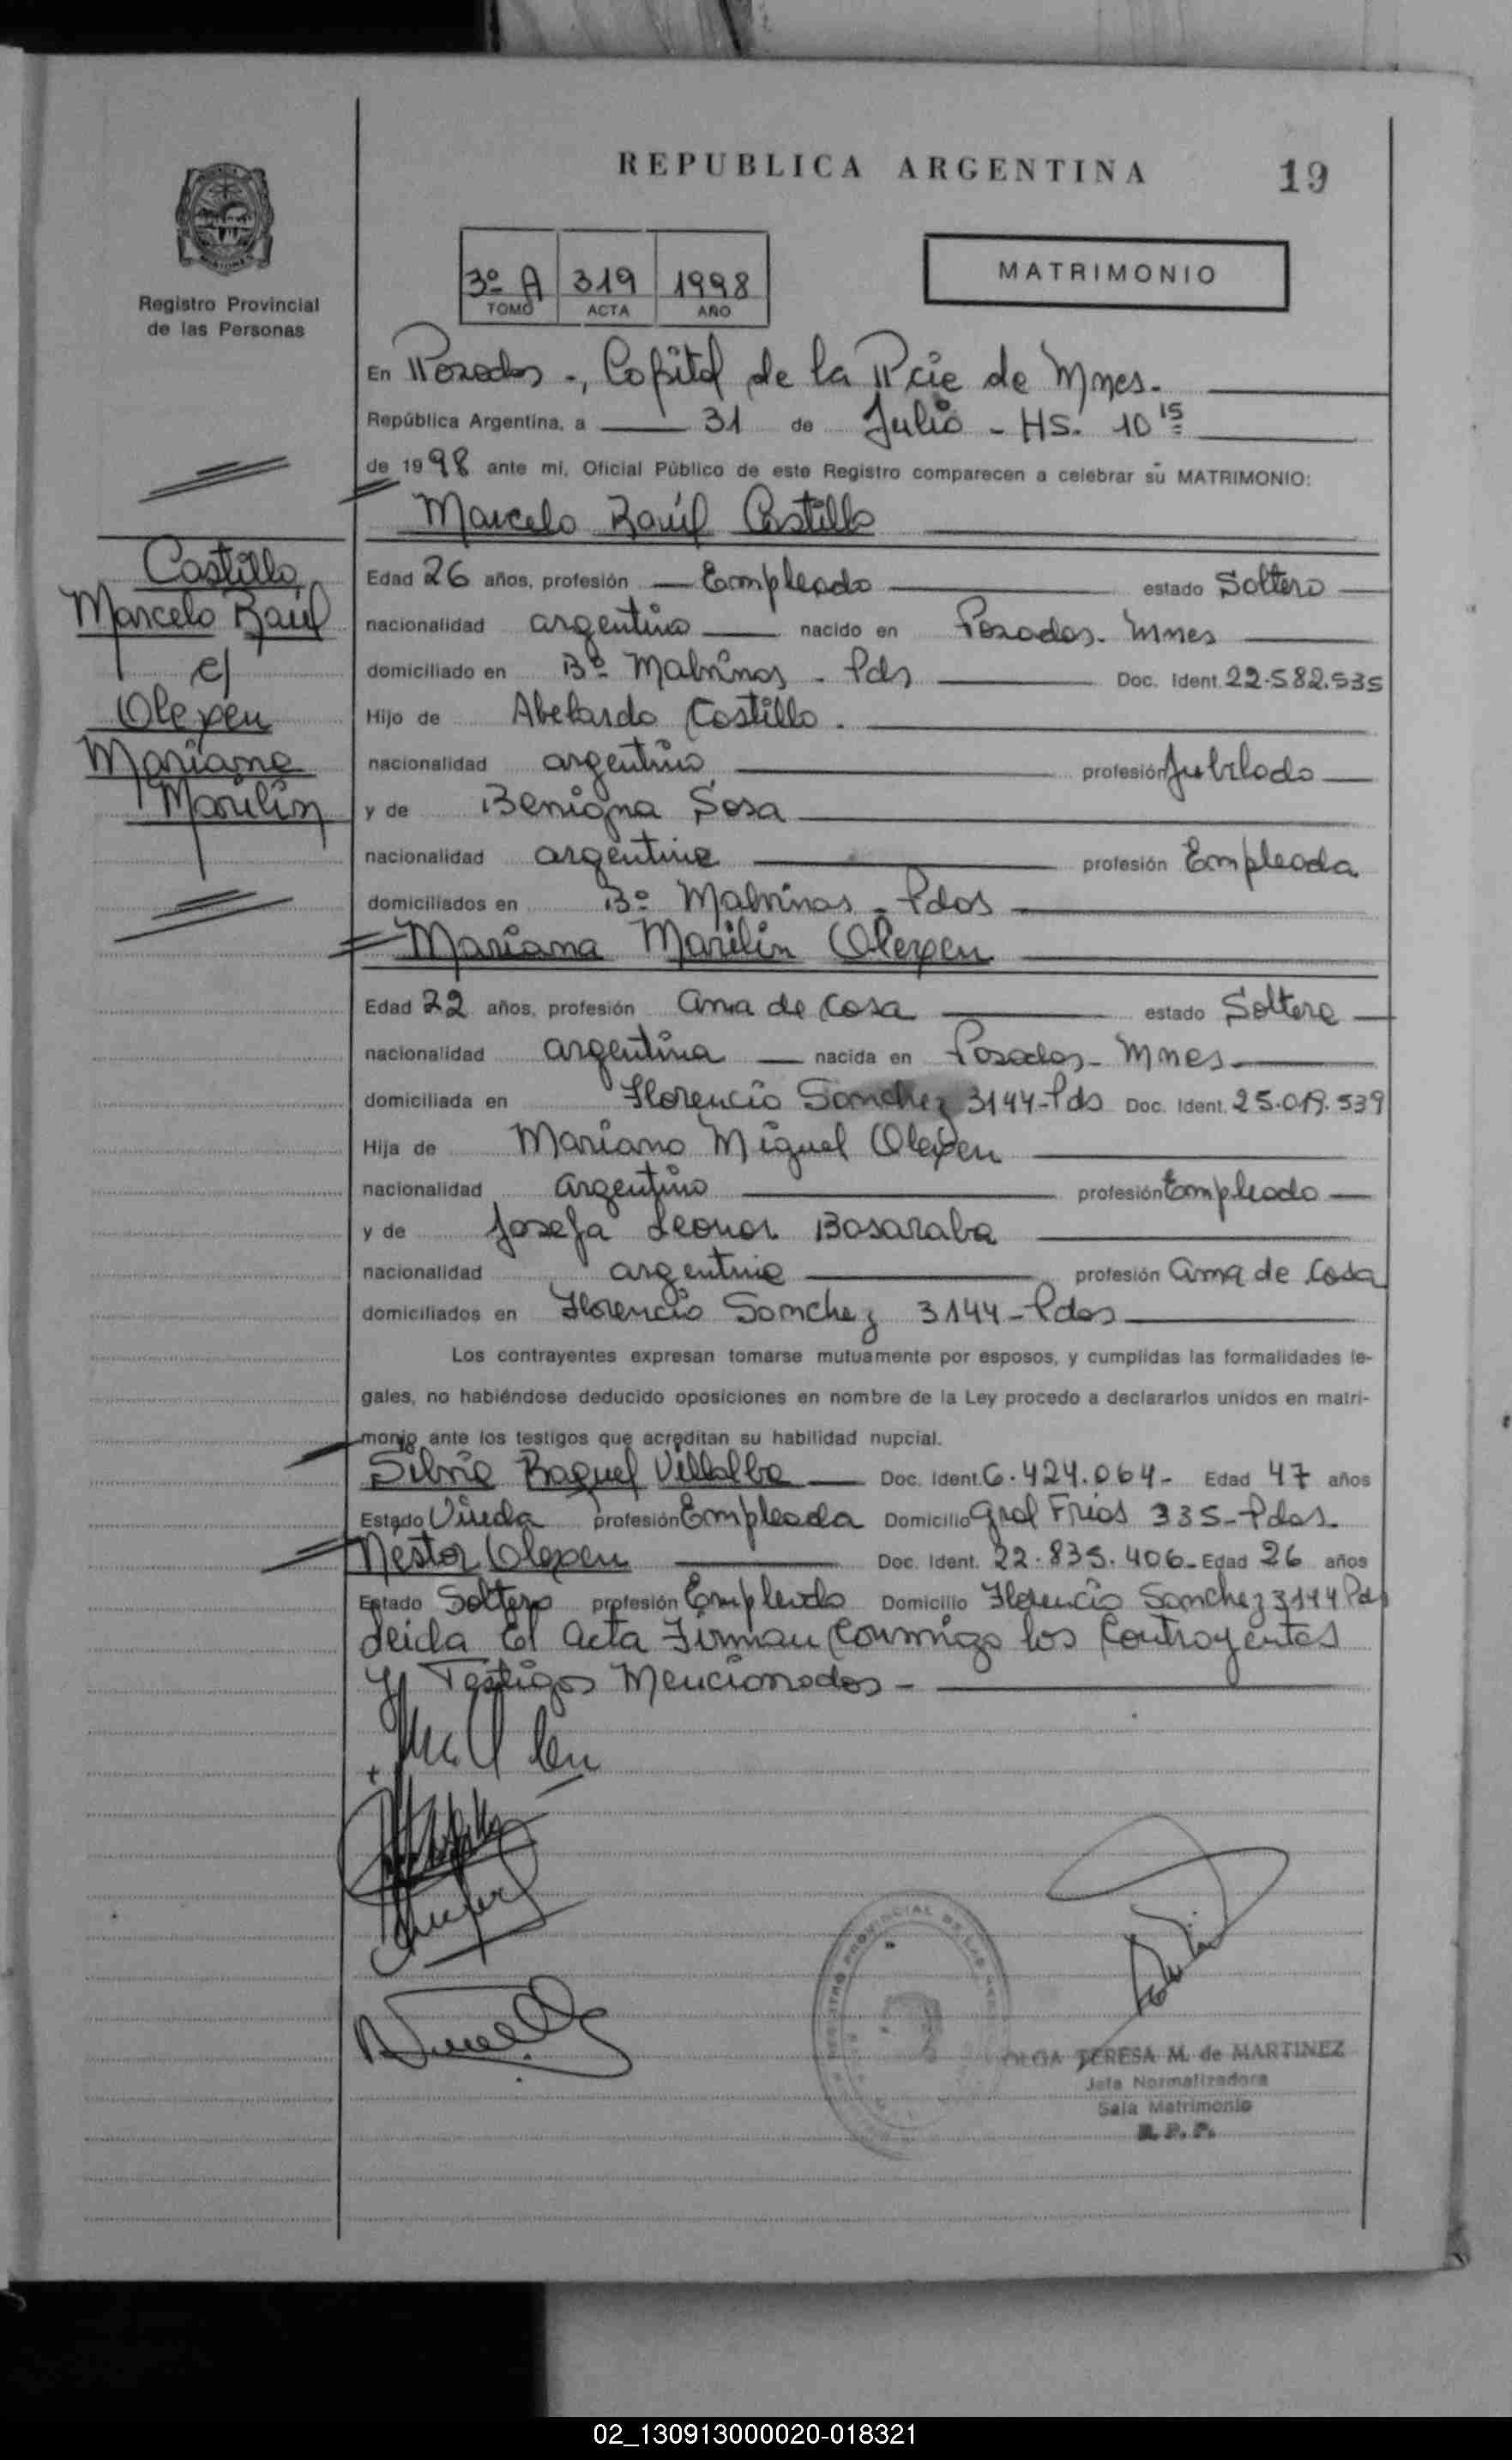 REPUBLICA ARGENTINA
19
Registro Provincial
de las Personas
3º A 319 1998
TOMO ACTA AÑO
MATRIMONIO
En Posadas -, Capital de la Pcie de Mnes.
República Argentina, a 31 de Julio - HS. 10 15
de 1998 ante mi, Oficial Público de este Registro comparecen a celebrar su MATRIMONIO:
Marcelo Raúl Castillo
Castillo
Marcelo Raúl
c/
Olexen
Mariana
Marilin
Edad 26 años, profesión Empleado estado Soltero
nacionalidad argentino nacido en Posadas. Mnes
domiciliado en Bº Malvinas - Pds Doc. Ident. 22.582.535
Hijo de Abelardo Castillo.
nacionalidad argentino profesión Jubilado
y de Benigna Sosa
nacionalidad argentina profesión Empleada
domiciliados en Bº Malvinas - Pdas
Mariana Marilin Olexen
Edad 22 años, profesión ama de Casa estado Soltera
nacionalidad argentina nacida en Posadas - Mnes.
domiciliada en Florencio Sanchez 3144-Pds Doc. Ident. 25.019.539
Hija de Mariano Miguel Olexen
nacionalidad argentino profesión Empleado
y de Josefa Leonor Bosaraba
nacionalidad argentina profesión ama de Casa
domiciliados en Florencio Sanchez 3144-Pdas
Los contrayentes expresan tomarse mutuamente por esposos, y cumplidas las formalidades le-
gales, no habiéndose deducido oposiciones en nombre de la Ley procedo a declararlos unidos en matri-
monio ante los testigos que acreditan su habilidad nupcial.
Silvia Raquel Villalba Doc. Ident. 6.424.064- Edad 47 años
Estado Viuda profesión Empleada Domicilio Gral Frias 335-Pdas.
Nestor Olexen Doc. Ident. 22.835.406- Edad 26 años
Estado Soltero profesión Empleado Domicilio Florencio Sanchez 3144 Pds
Leida El acta Firman Conmigo los Contrayentes
y Testigos Mencionados -
OLGA TERESA M. de MARTINEZ
Jefa Normalizadora
Sala Matrimonio
R. P. P.
02_130913000020-018321